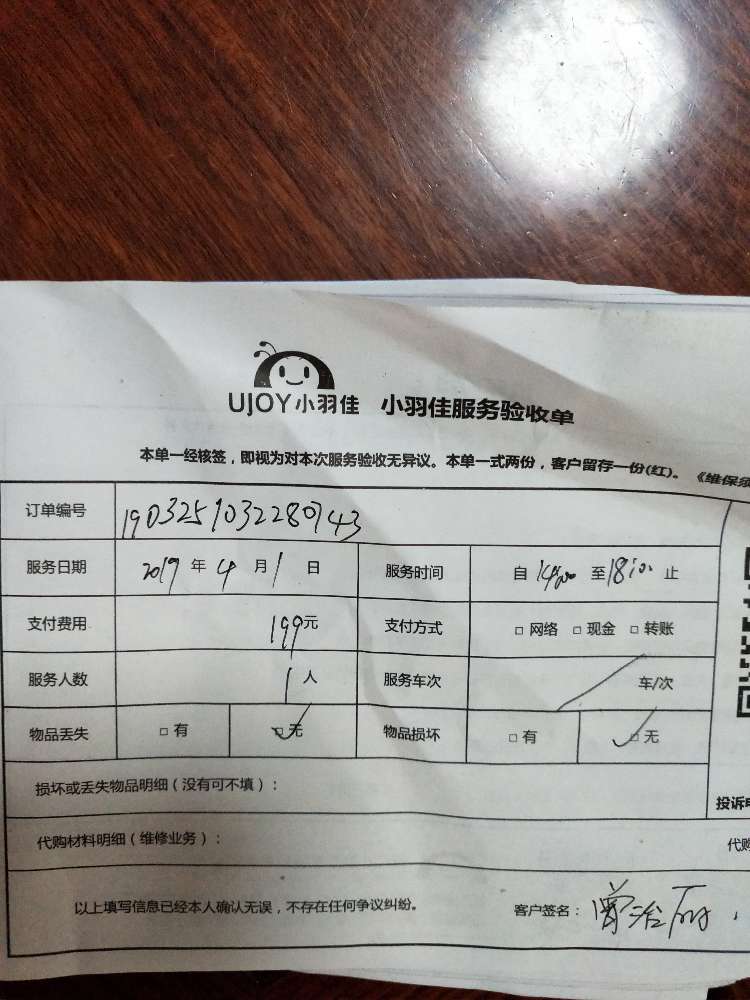 UJOY小羽佳 小羽佳服务验收单
本单一经核签，即视为对本次服务验收无异议。本单一式两份，客户留存一份(红)。《维保须
订单编号 1903251032280743
服务日期 2019 年 4 月 1 日 服务时间 自 14:00 至 18:00 止
支付费用 199元 支付方式 □ 网络 □ 现金 □ 转账
服务人数 1 人 服务车次 车/次
物品丢失 □ 有 □ 无 物品损坏 □ 有 □ 无
损坏或丢失物品明细（没有可不填）：
投诉电
代购材料明细（维修业务）：
代购
以上填写信息已经本人确认无误，不存在任何争议纠纷。 客户签名：